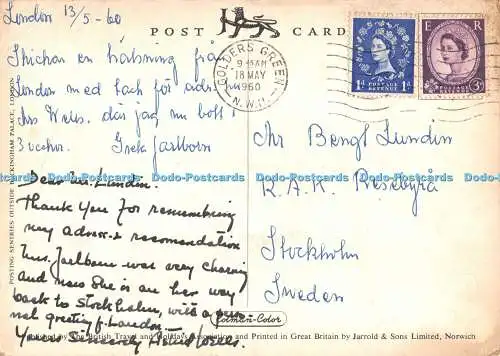 London 13/5-60
POST CARD
Skickar en hälsning från
London med tack för adressen
Mrs Weiss. där jag nu bott i
3 veckor. Greta Jarlborn
GOLDERS GREEN
9.15AM
18 MAY
1960
N.W.11
1D POSTAGE REVENUE 1D
E R
POSTAGE REVENUE 3D
Hr Bengt Lundin
R.A.K. Resebyrå
Stockholm
Sweden
Dear Mr. Lundin.
Thank you for remembering
my adress & recomendation
Mrs. Jarlborn was very charming
and now she is on her way
back to Stockholm, with a perso-
nal greeting f. London.
Yours Sincerely
POSTING SENTRIES OUTSIDE BUCKINGHAM PALACE, LONDON
Colman-Color
Published by The British Travel and Holidays Association and Printed in Great Britain by Jarrold & Sons Limited, Norwich
Dodo-Postcards Dodo-Postcards Dodo-Postcards Dodo-Postcards